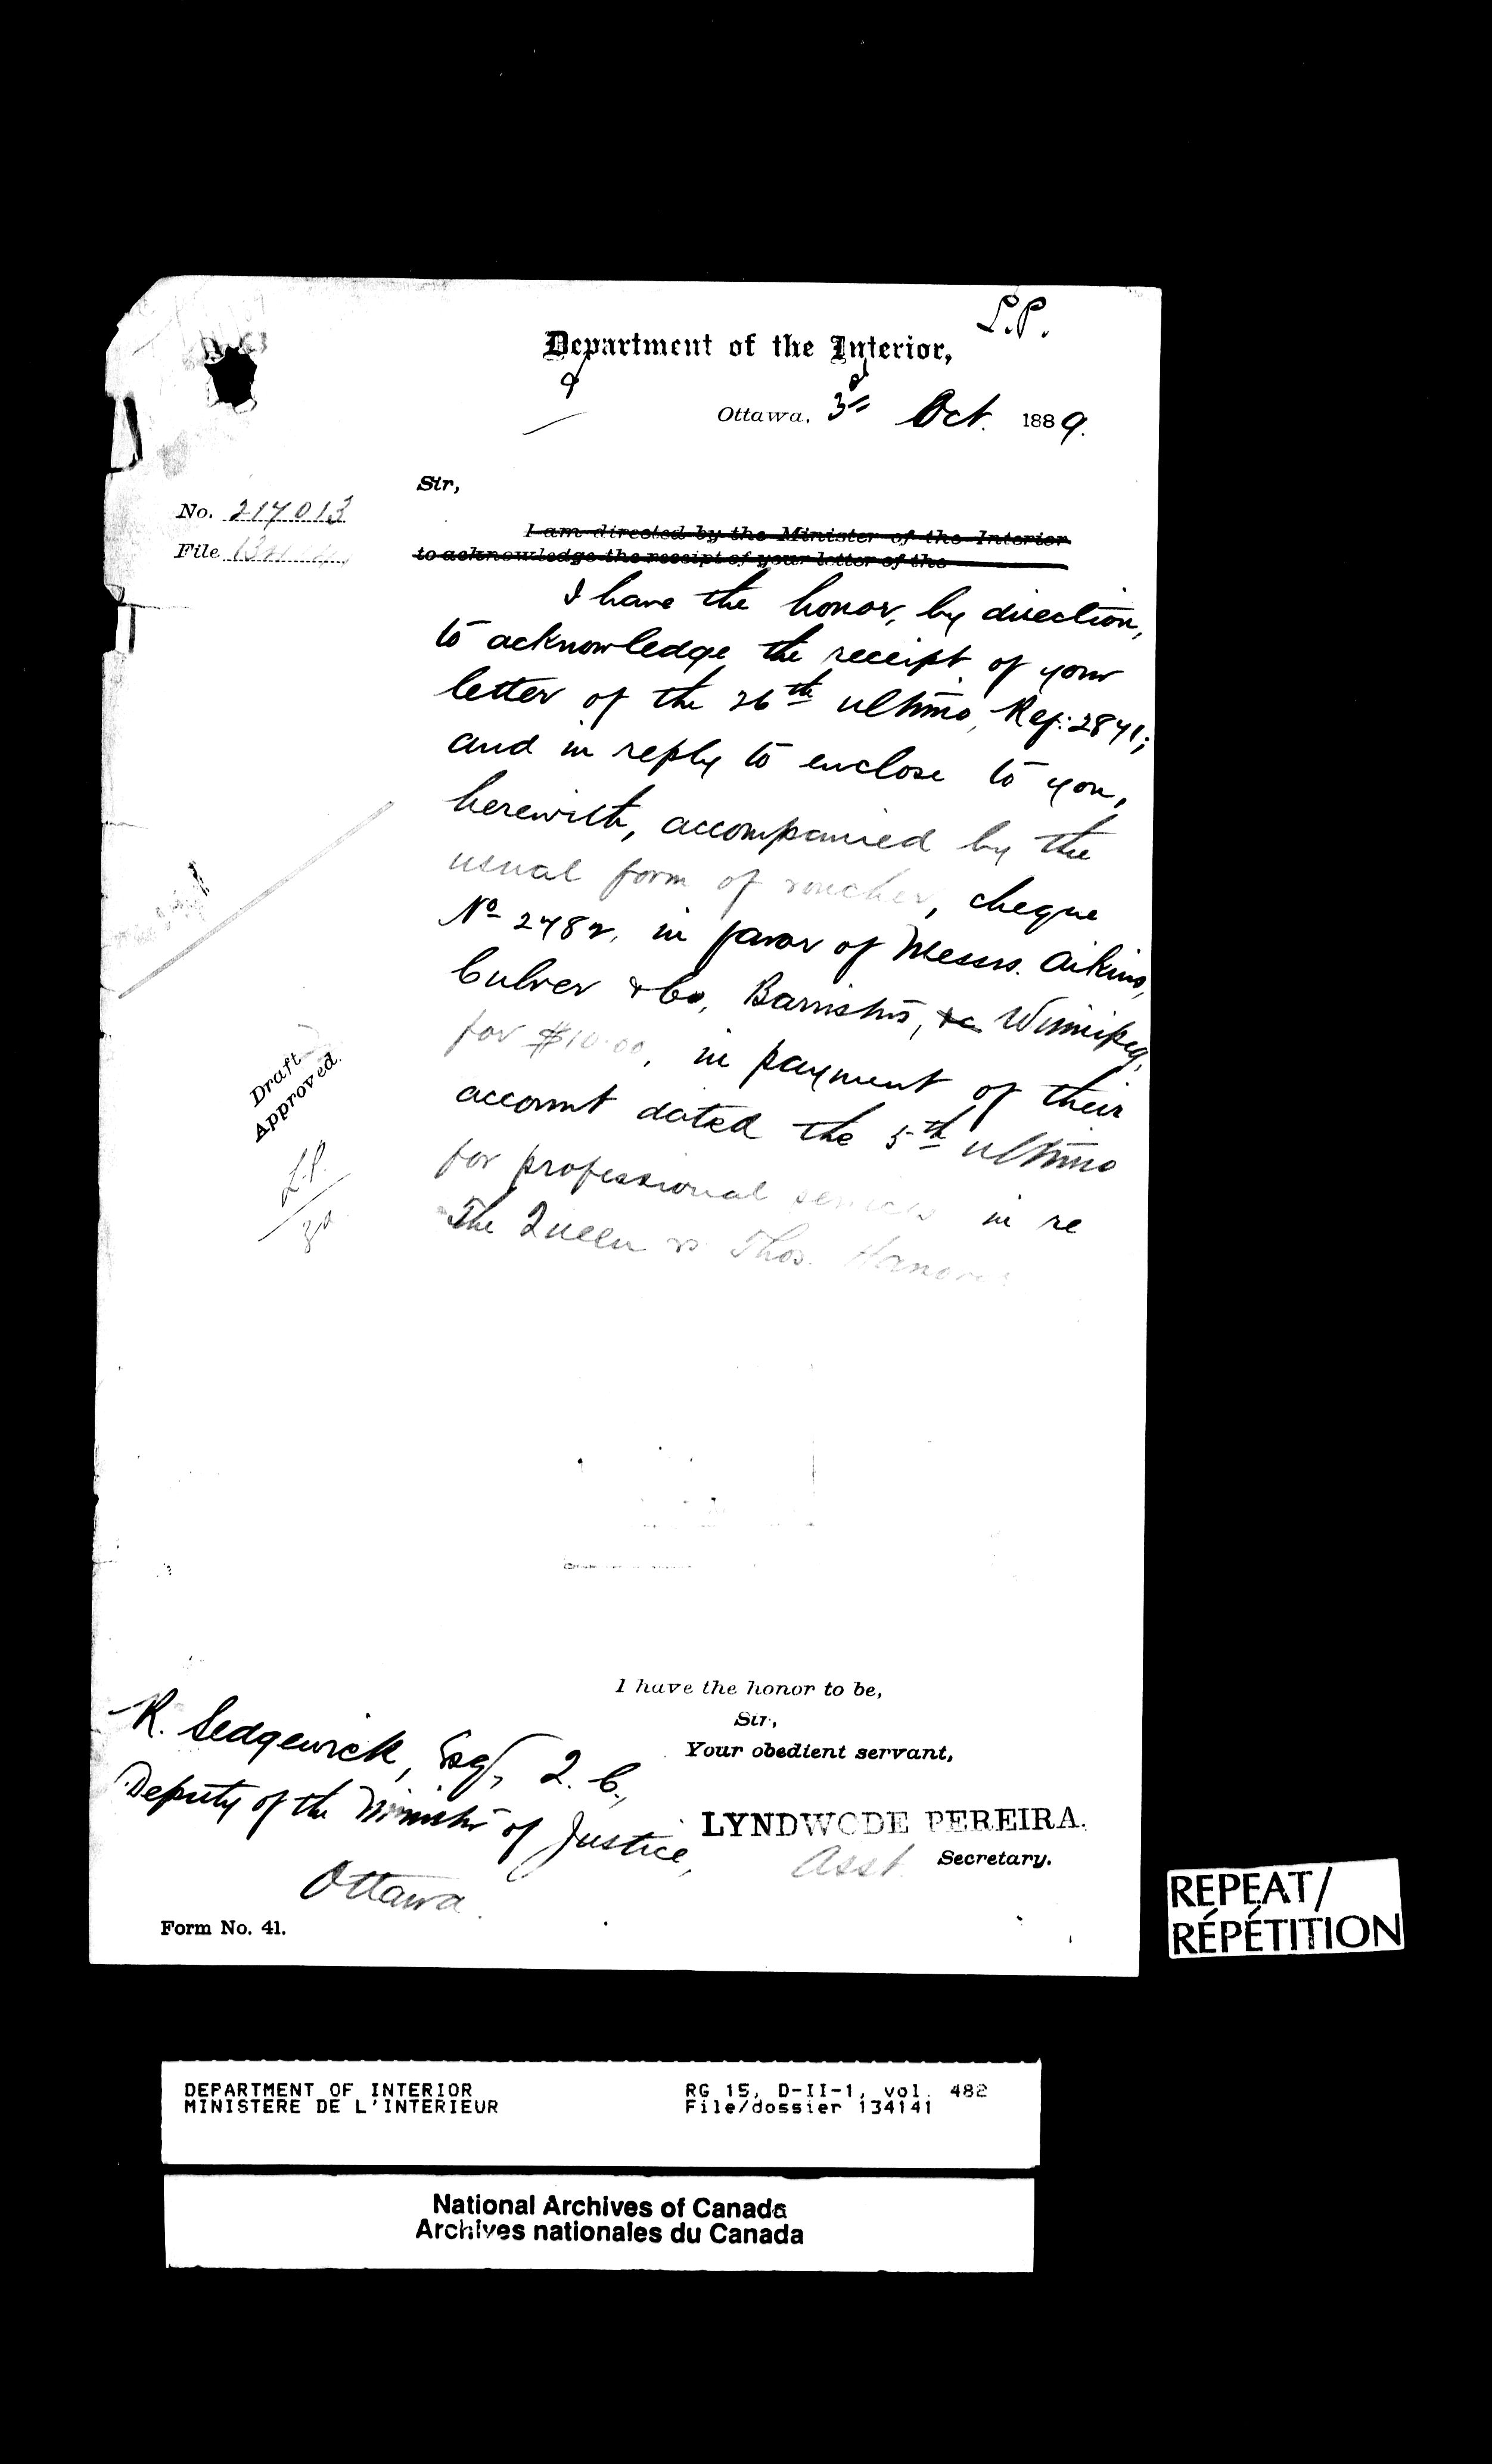 L.P.
Department of the Interior,
Ottawa, 3rd Oct. 1889.
Sir,
No. 217013
File
I am directed by the Minister of the Interior
to acknowledge the receipt of your letter of the
I have the honor, by direction,
to acknowledge the receipt of your
letter of the 26th ultimo, Ref: 2871;
and in reply to enclose to you,
herewith, accompanied by the
usual form of voucher, cheque
No 2782, in favor of Messrs. Aikins,
Culver & Co, Barristers, &c Winnipeg,
for $10.00, in payment of their
account dated the 5th ultimo
for professional services in re
The Queen vs Thos.
Draft
Approved.
L.P.
I have the honor to be,
Sir,
Your obedient servant,
LYNDWODE PEREIRA.
Asst. Secretary.
R. Sedgewick, Esq, Q. C.,
Deputy of the Minister of Justice,
Ottawa.
Form No. 41.
REPEAT/
RÉPÉTITION
DEPARTMENT OF INTERIOR
MINISTERE DE L'INTERIEUR
RG 15, D-II-1, vol. 482
File/dossier 134141
National Archives of Canada
Archives nationales du Canada